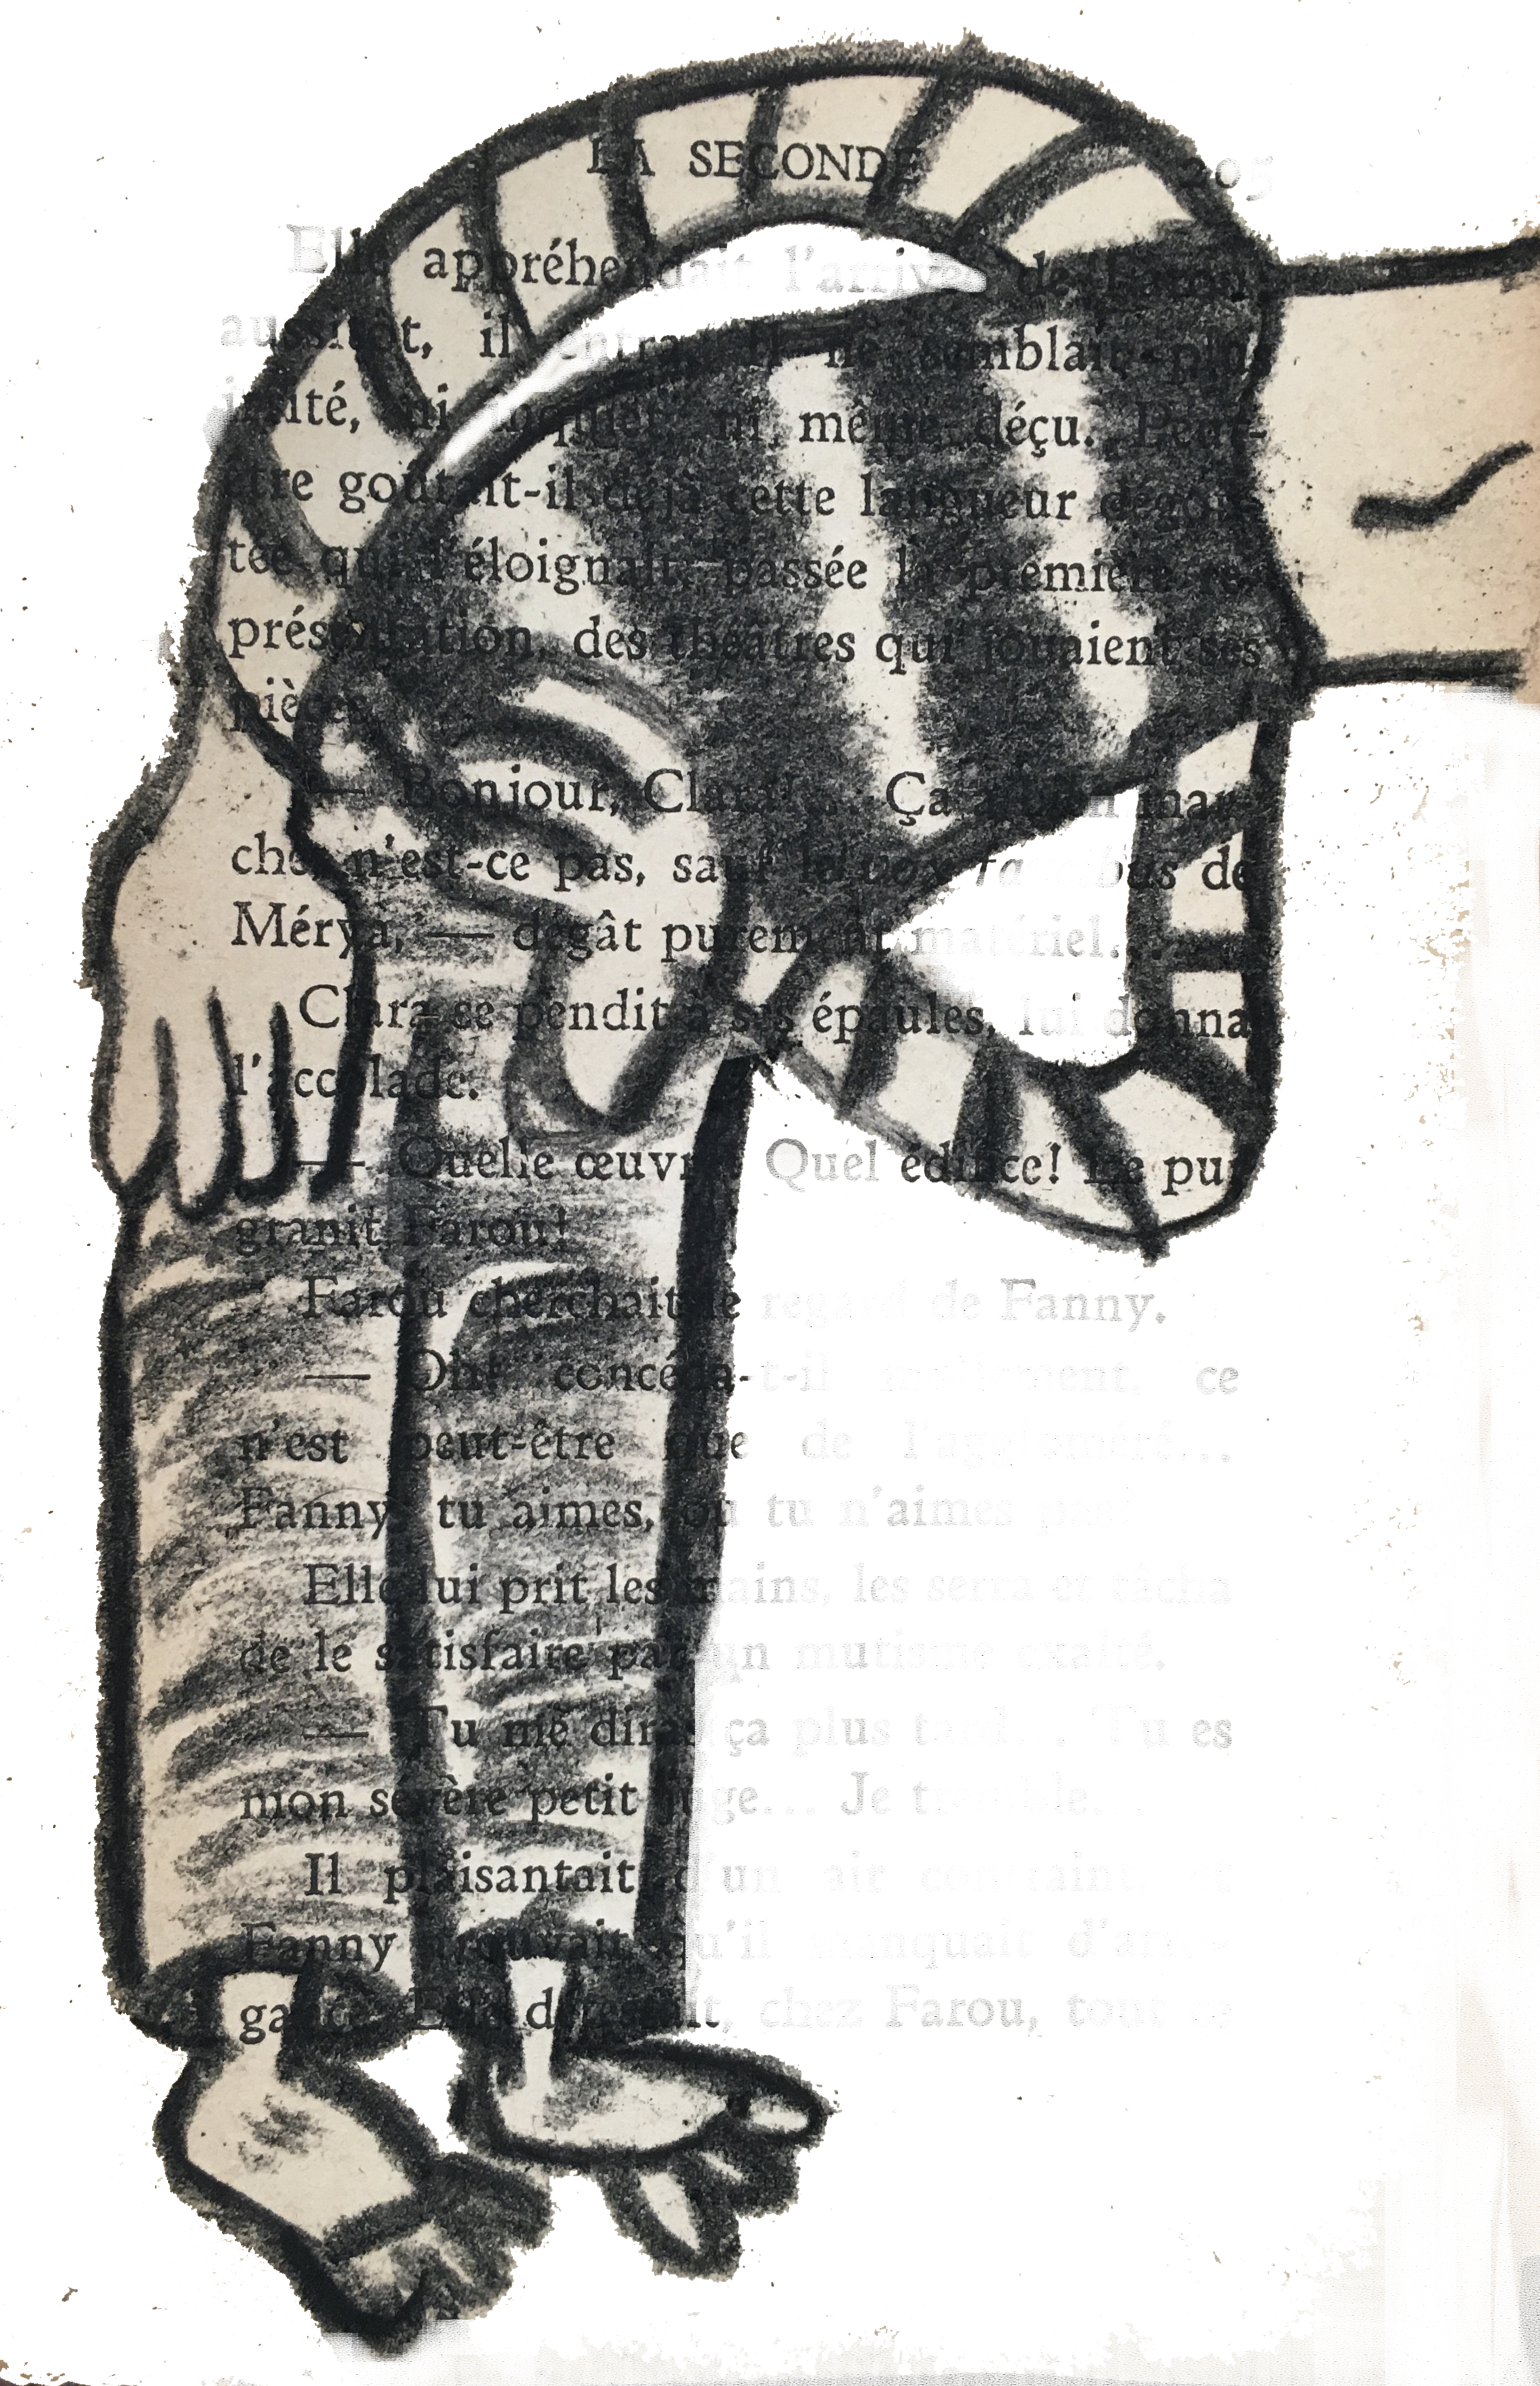 LA SECONDE 205
Elle appréhendait l'arrivée de Farou;
aussitôt, il entra. Il ne semblait plus
irrité, ni inquiet, ni même déçu. Peut-
être goûtait-il déjà cette langueur dégoû-
tée qui l'éloignait, passée la première re-
présentation, des théâtres qui jouaient ses
pièces.
— Bonjour, Clara!... Ça a bien mar-
ché, n'est-ce pas, sauf la vox faucibus de
Mérya, — dégât purement matériel...
Clara se pendit à ses épaules, lui donna
l'accolade.
— Quelle œuvre! Quel édifice! Le pur
granit Farou!
Farou cherchait le regard de Fanny.
— Oh! concéda-t-il mollement, ce
n'est peut-être que de l'aggloméré...
Fanny, tu aimes, ou tu n'aimes pas?
Elle lui prit les mains, les serra et tâcha
de le satisfaire par un mutisme exalté.
— Tu me diras ça plus tard... Tu es
mon sévère petit juge... Je tremble...
Il plaisantait d'un air contraint, et
Fanny trouvait qu'il manquait d'arro-
gance. Elle d t, chez Farou, tout ce